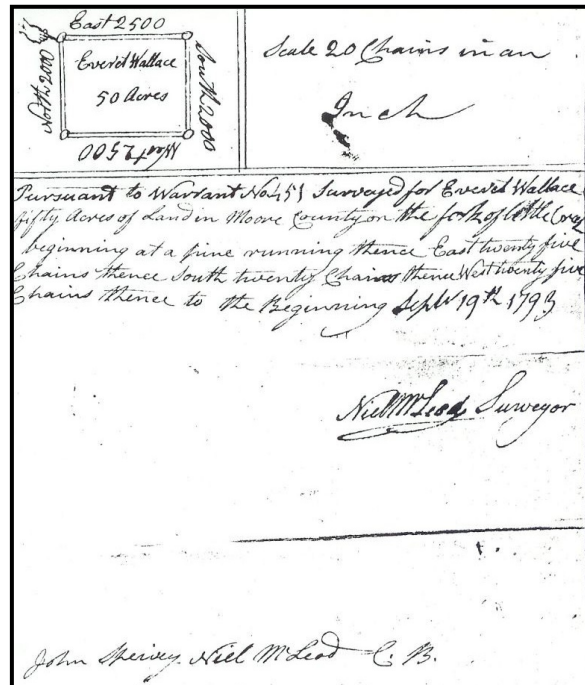 East 2500
Everet Wallace
50 Acres
South 2000
West 2500
North 2000
Scale 20 Chains in an
Inch
Pursuant to Warrant No 451 Surveyed for Everet Wallace
fifty Acres of Land in Moore County on the fork of little
beginning at a pine running thence East twenty five
Chains thence South twenty Chains thence West twenty five
Chains thence to the Beginning Sept 19th 1793
Niel McLeod Surveyor
John Spivey Niel McLeod C. B.